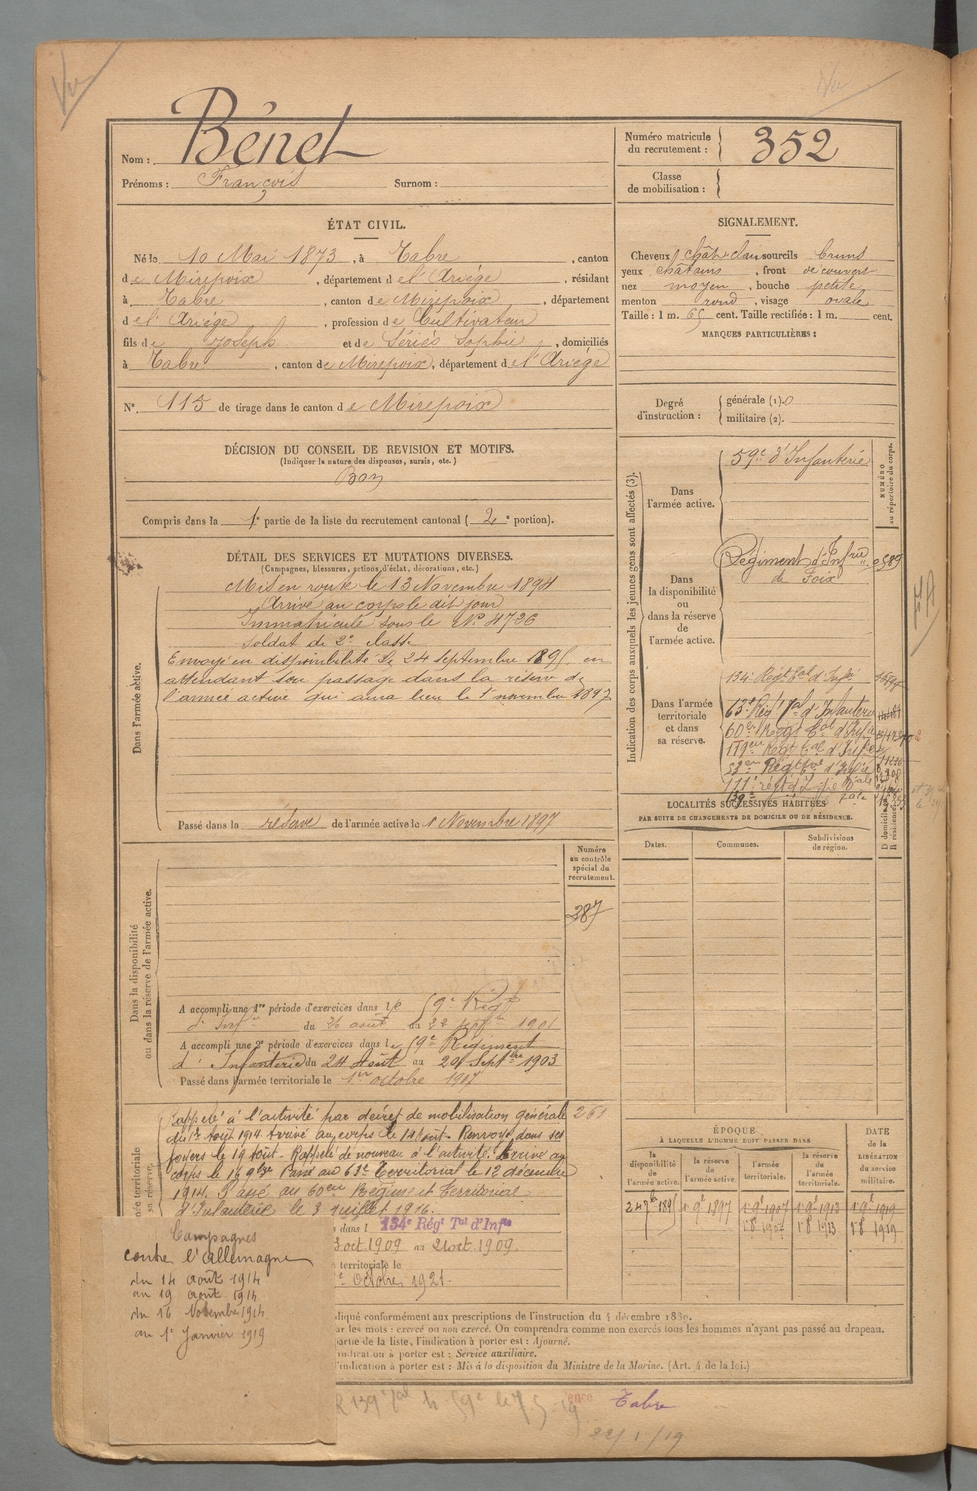 Vu
Vu
Nom : Bénet
Prénoms : François Surnom :
Numéro matricule du recrutement : 352
Classe de mobilisation :
ÉTAT CIVIL.
Né le 10 Mai 1873, à Tabre, canton
de Mirepoix, département de l'Ariège, résidant
à Tabre, canton de Mirepoix, département
de l'Ariège, profession de Cultivateur
fils de Joseph et de Sériès Sophie, domiciliés
à Tabre, canton de Mirepoix, département de l'Ariège
N° 115 de tirage dans le canton de Mirepoix
SIGNALEMENT.
Cheveux chât. clair sourcils bruns
yeux châtains, front découvert
nez moyen, bouche petite
menton rond, visage ovale
Taille : 1 m. 65 cent. Taille rectifiée : 1 m. cent.
MARQUES PARTICULIÈRES :
Degré d'instruction : générale (1). 0
militaire (2).
DÉCISION DU CONSEIL DE REVISION ET MOTIFS.
(Indiquer la nature des dispenses, sursis, etc.)
Bon
Compris dans la 1e partie de la liste du recrutement cantonal ( 2e portion).
DÉTAIL DES SERVICES ET MUTATIONS DIVERSES.
(Campagnes, blessures, actions d'éclat, décorations, etc.)
Dans l'armée active.
Mis en route le 13 Novembre 1894
Arrivé au corps le dit jour
Immatriculé sous le N° 4736
Soldat de 2e classe
Envoyé en disponibilité le 24 septembre 1895 en
attendant son passage dans la réserve de
l'armée active qui aura lieu le 1er novembre 1897
Passé dans la réserve de l'armée active le 1 Novembre 1897
Indication des corps auxquels les jeunes gens sont affectés (3).
NUMÉRO au répertoire du corps.
Dans l'armée active.
59e d'Infanterie
Dans la disponibilité ou dans la réserve de l'armée active.
Régiment d'Infrie de Foix
Dans l'armée territoriale et dans sa réserve.
134e Régt Tal d'Infie
63e Régt Tal d'Infanterie
60e Regt Tal d'Infie
119e Regt Tal d'Infie
53e Regt Tal d'Infie
139e
LOCALITÉS SUCCESSIVES HABITÉES
PAR SUITE DE CHANGEMENTS DE DOMICILE OU DE RÉSIDENCE.
D domicile.
R résidence.
Dates. Communes. Subdivisions de région.
Dans la disponibilité ou dans la réserve de l'armée active.
Numéro au contrôle spécial du recrutement.
387
A accompli une 1re période d'exercices dans le 59e Régt
d'Infie du 26 août au 22 septbre 1901
A accompli une 2e période d'exercices dans le 59e Régiment
d'Infanterie du 24 Août au 20 Septbre 1903
Passé dans l'armée territoriale le 1er octobre 1907
Rappelé à l'activité par décret de mobilisation générale
du 1er Août 1914. Arrivé au corps le 14 Août. Renvoyé dans ses
foyers le 19 Août. Rappelé de nouveau à l'activité. Arrivé au
corps le 16 9bre. Passé au 63e Territorial le 12 décembre
1914. Passé au 60em Régiment Territorial
d'Infanterie le 3 juillet 1916.
261
134e Régt Tal d'Infie
oct. 1909 au 21 oct. 1909.
territoriale le
octobre 1921.
Campagnes
contre l'Allemagne
du 14 août 1914
au 19 août 1914
du 16 Novembre 1914
au 1er Janvier 1919
ÉPOQUE
À LAQUELLE L'HOMME DOIT PASSER DANS
la disponibilité de l'armée active.
la réserve de l'armée active.
l'armée territoriale.
la réserve de l'armée territoriale.
DATE de la LIBÉRATION du service militaire.
24 7bre 1895 1 9bre 1897 1 9bre 1907 1 9bre 1913 1 9bre 1919
1 8bre 1907 1 8bre 1913 1 8bre 1919
pliqué conformément aux prescriptions de l'instruction du 4 décembre 1889.
ar les mots : exercé ou non exercé. On comprendra comme non exercés tous les hommes n'ayant pas passé au drapeau.
partie de la liste, l'indication à porter est : Ajourné.
indication à porter est : Service auxiliaire.
l'indication à porter est : Mis à la disposition du Ministre de la Marine. (Art. 4 de la loi.)
Tabre
22/1/19